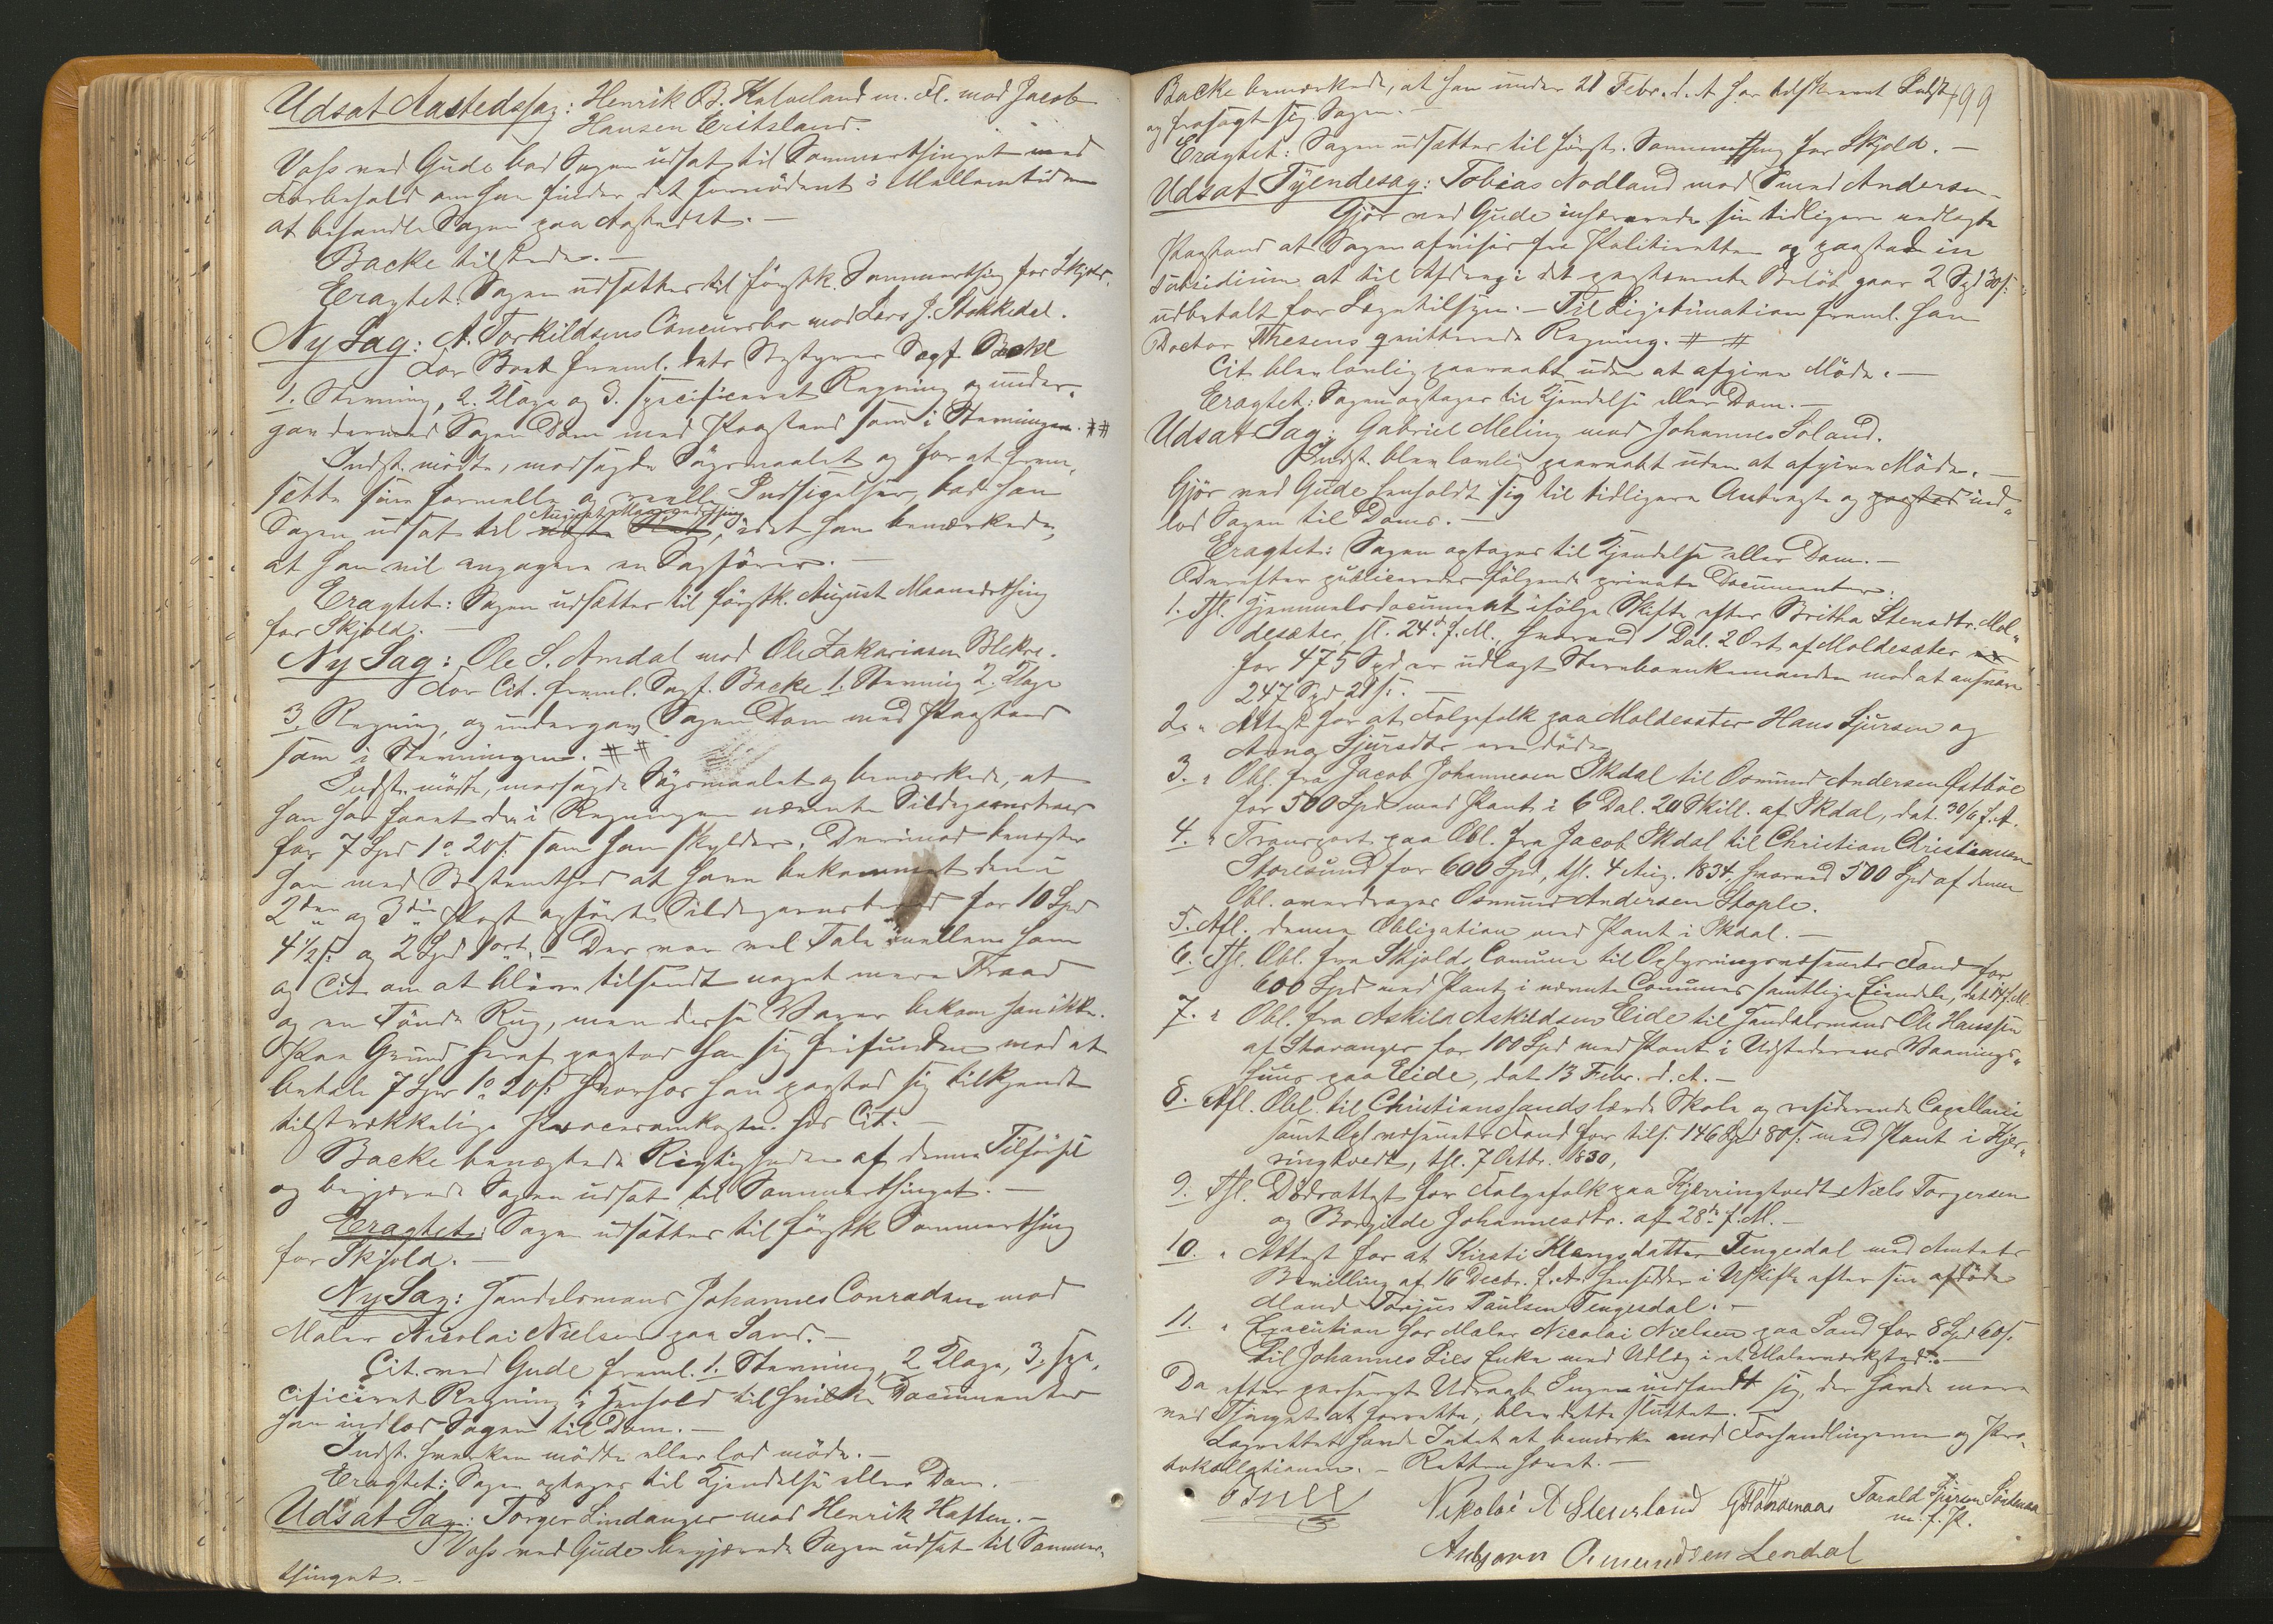 Udsat Aastedssag: Henrik B. Kalveland m. Fl. mod Jacob
Hansen Eritsland.
Voss ved Gude bad Sagen udsat til Sommerthinget med
Forbehold om han finder det fornødent i Mellemtiden
at behandle Sagen paa Aastedet. —
Backe tilstede. —
Eragtet: Sagen udsættes til førstk. Sommerthing for Skjold.
Ny Sag: A. Torkildsens Concursbo mod Lars J. Stakkedal.
For Boet freml. dets Bestyrer Sagf. Backe
1. Stevning, 2. Klage og 3. specificeret Regning og under-
gav dermed Sagen Dom med Paastand som i Stevningen. ##
Indst. mødte, modsagde Søgsmaalet og for at frem-
sætte sine formelle og reelle Indsigelser, bad han
Sagen udsat til August Maanedsthing, idet han bemærkede,
at han vil engagere en Sagfører. —
Eragtet: Sagen udsættes til førstk. August Maanedsthing
for Skjold. —
Ny Sag: Ole S. Amdal mod Ole Zakariasen Blekre.
For Cit. freml. Sagf. Backe 1. Stevning 2. Klage
3. Regning, og undergav Sagen Dom med Paastand
som i Stevningen. ##
Indst. mødte, modsagde Søgsmaalet og bemærkede, at
han har faaet den i Regningen nævnte Sildegarnstraad
for 7 Spd 1 o. 20 s. som han skylder. Derimod benægter
han med Bestemthed at have bekommet den i
2den og 3die Post opførte Sildegarnstraad for 10 Spd
4 1/2 s. og 2 Spd 1 ort. — Der var vel Tale mellem ham
og Cit. om at blive tilsendt noget mere Traad
og en Tønde Rug, men disse Varer bekom han ikke.
Paa Grund heraf paastod han sig frifunden mod at
betale 7 Spd 1 o. 20 s. hvorhos han paastod sig tilkjendt
tilstrækkelige Procesomkostn. hos Cit. —
Backe benægtede Rigtigheden af denne Tilførsel
og begjærede Sagen udsat til Sommerthinget. —
Eragtet: Sagen udsættes til førstk Sommerthing
for Skjold. —
Ny Sag: Handelsmand Johannes Conradsen mod
Maler Nicolai Nielsen paa Sand. —
Cit. ved Gude freml. 1. Stevning, 2. Klage, 3. spe-
cificeret Regning i Henhold til hvilke Documenter
han indlod Sagen til Dom. —
Indst. hverken mødte eller lod møde. —
Eragtet: Sagen optages til Kjendelse eller Dom.
Udsat Sag: Torger Lindanger mod Henrik Hatten. —
Voss ved Gude begjærede Sagen udsat til Sommer-
thinget. —
199
Backe bemærkede, at han under 21 Febr. d. A. har tilskrevet Indst.
og frasagt sig Sagen. —
Eragtet: Sagen udsættes til førstk. Sommerthing for Skjold. —
Udsat Tyendesag: Tobias Nodland mod Svend Andersen
Gjør ved Gude inhærerede sin tidligere nedlagte
Paastand at Sagen afvises fra Politiretten og paastod in
subsidium at til Afdrag i det paastevnte Beløb gaar 2 Spd 30 s.
udbetalt for Lægetilsyn. — Til Legitimation freml. han
Doctor Thesens qvitterede Regning. # #
Cit. blev lovlig paaraabt uden at afgive Møde. —
Eragtet: Sagen optages til Kjendelse eller Dom. —
Udsat Sag: Gabriel Meling mod Johannes Soland.
Indst. blev lovlig paaraabt uden at afgive Møde. —
Gjør ved Gude henholdt sig til tidligere Anbragte og paastod ind-
lod Sagen til Doms. —
Eragtet: Sagen optages til Kjendelse eller Dom. —
Derefter publiceredes følgende private Documenter:
1. Thl. Hjemmelsdocument ifølge Skifte efter Britha Stensdtr. Mol-
desæter, sl. 24de f. M., hvorved 1 Dal. 2 Ort af Moldesæter
for 475 Spd er udlagt Stervboenkemanden mod at ansvare
247 Spd 21 s. —
2. " Attest for at Folgefolk paa Moldesæter Hans Sjursen og
Anna Sjursdtr. ere døde.
3. " Obl. fra Jacob Johannesen Ikdal til Osmund Andersen Østbøe
for 500 Spd med Pant i 6 Dal. 20 Skill. af Ikdal, dat. 30/6 f. A.
4. " Transport paa Obl. fra Jacob Ikdal til Christian Christiansen
Storesund for 600 Spd, thl. 4 Aug. 1834, hvorved 500 Spd af denne
Obl. overdrages Osmund Andersen Stople.
5. Afl. denne Obligation med Pant i Ikdal. —
6. Thl. Obl. fra Skjolds Comune til Oplysningsvæsenets Fond for
600 Spd med Pant i nævnte Comunes samtlige Eiendele, dat 14 f. M.
7. " Obl. fra Askild Askildsen Eide til Handelsmand Ole Hanssen
af Stavanger for 100 Spd med Pant i Udstederens Vaanings-
huus paa Eide, dat 13 Febr. d. A. —
8. Afl. Obl. til Christianssands lærde Skole og residerende Capellani
samt Opl.væsenets Fond for tils. 146 Spd 80 s. med Pant i Kjer-
ringtvedt, thl. 7 Octbr. 1830,
9. Thl. Dødsattest for Folgefolk paa Kjerringtvedt Niels Torgersen
og Borgilde Johannesdtr. af 28de f. M. —
10. " Attest for at Kirsti Klengsdatter Tengesdal med Amtets
Bevilling af 16 Decbr. f. A. hensidder i Uskifte efter sin afdøde
Mand Torjus Paulsen Tengesdal. —
11. " Execution hos Maler Nicolai Nielsen paa Sand for 8 Spd 60 s.
til Johannes Lies Enke med Udlæg i et Malerværksted. —
Da efter passeret Udraab Ingen indfandt sig, der havde mere
ved Thinget at forrette, blev dette sluttet. —
Lagrettet havde Intet at bemærke mod Forhandlingerne og Pro-
tokollationen. — Retten hævet. —
Nikolai A Stenersland Tarald Sjursen
m. f. P.
Asbjørn Osmundsen Lendal